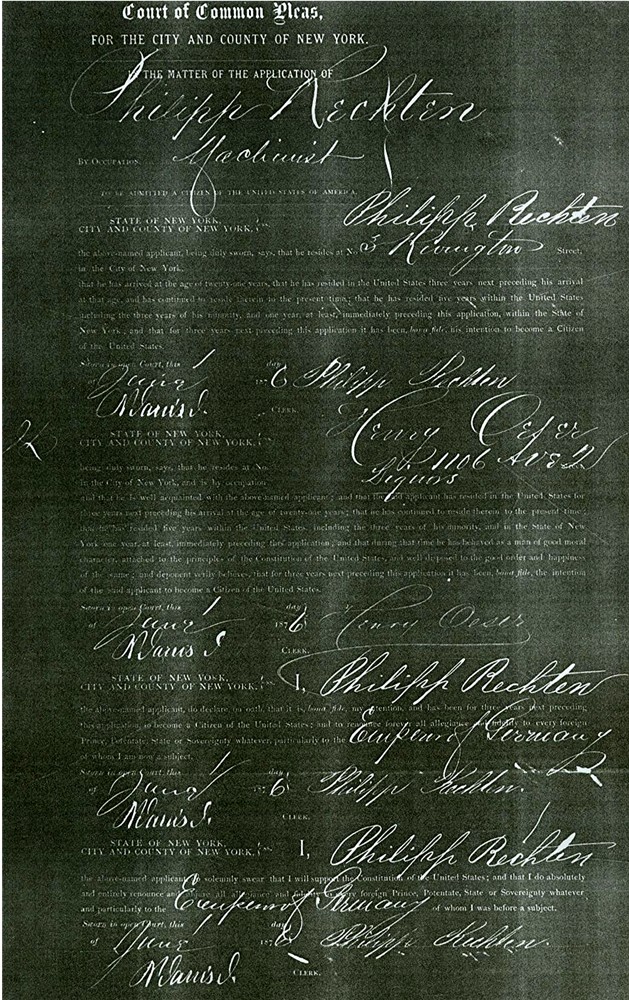 Court of Common Pleas,
FOR THE CITY AND COUNTY OF NEW YORK.
IN THE MATTER OF THE APPLICATION OF
Philipp Rechten
BY OCCUPATION Machinist
TO BE ADMITTED A CITIZEN OF THE UNITED STATES OF AMERICA.
STATE OF NEW YORK,
CITY AND COUNTY OF NEW YORK, ss. Philipp Rechten
the above-named applicant, being duly sworn, says, that he resides at No. 3 Rivington Street,
in the City of New York,
that he has arrived at the age of twenty-one years, that he has resided in the United States three years next preceding his arrival
at that age, and has continued to reside therein to the present time; that he has resided five years within the United States
including the three years of his minority, and one year, at least, immediately preceding this application, within the State of
New York; and that for three years next preceding this application it has been, bona fide, his intention to become a Citizen
of the United States.
Sworn in open Court, this 1 day
of June 1876 Philipp Rechten
CLERK.
STATE OF NEW YORK,
CITY AND COUNTY OF NEW YORK, ss. Henry Oeser
being duly sworn, says, that he resides at No. 1106 Ave
in the City of New York, and is by occupation Liquors
and that he is well acquainted with the above-named applicant; and that the said applicant has resided in the United States for
three years next preceding his arrival at the age of twenty-one years; that he has continued to reside therein to the present time;
that he has resided five years within the United States, including the three years of his minority, and in the State of New
York one year, at least, immediately preceding this application; and that during that time he has behaved as a man of good moral
character, attached to the principles of the Constitution of the United States, and well disposed to the good order and happiness
of the same; and deponent verily believes, that for three years next preceding this application it has been, bona fide, the intention
of the said applicant to become a Citizen of the United States.
Sworn in open Court, this 1 day
of June 1876 Henry Oeser
CLERK.
STATE OF NEW YORK,
CITY AND COUNTY OF NEW YORK, ss. I, Philipp Rechten
the above-named applicant, do declare, on oath, that it is, bona fide, my intention, and has been for three years next preceding
this application, to become a Citizen of the United States; and to renounce forever all allegiance and fidelity to every foreign
Prince, Potentate, State or Sovereignty whatever, particularly to the Emperor of Germany
of whom I am now a subject.
Sworn in open Court, this 1 day
of June 1876 Philipp Rechten
CLERK.
STATE OF NEW YORK,
CITY AND COUNTY OF NEW YORK, ss. I, Philipp Rechten
the above-named applicant, do solemnly swear that I will support the Constitution of the United States; and that I do absolutely
and entirely renounce and abjure all allegiance and fidelity to every foreign Prince, Potentate, State or Sovereignty whatever
and particularly to the Emperor of Germany of whom I was before a subject.
Sworn in open Court, this 1 day
of June 1876 Philipp Rechten
CLERK.